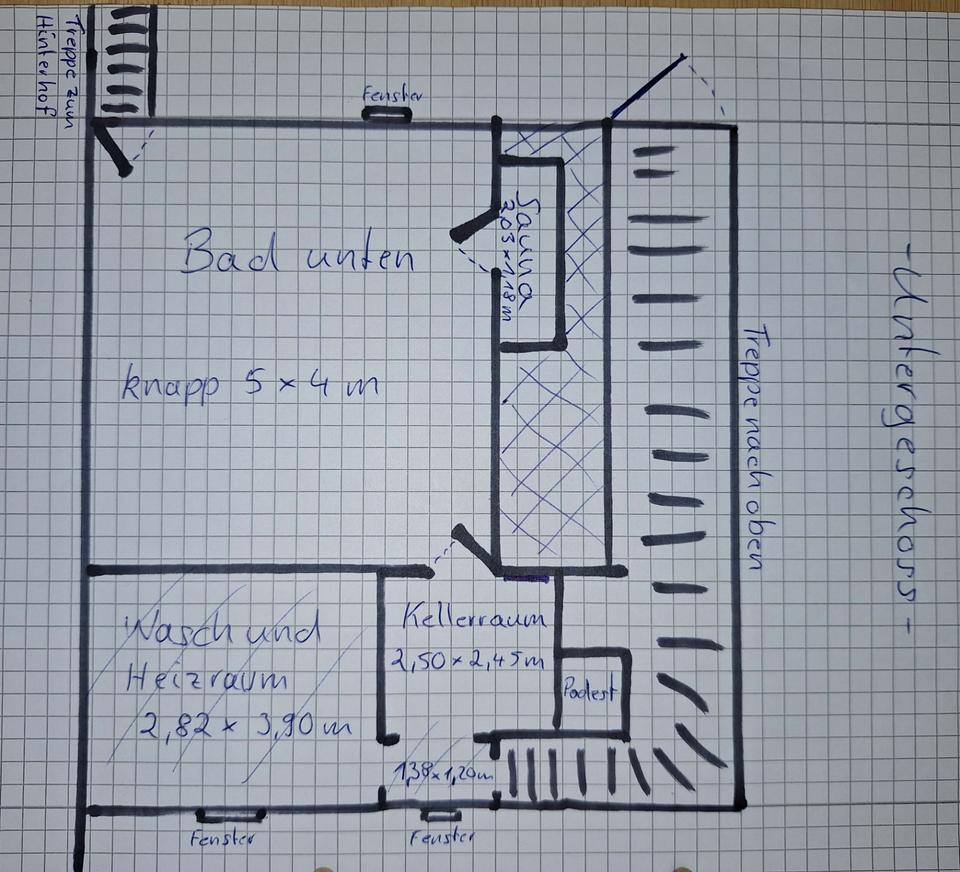 Treppe zum
Hinterhof
Fenster
Bad unten
knapp 5 x 4 m
Sauna
2,03 x 1,18 m
Treppe nach oben
- Untergeschoss -
Wasch und
Heizraum
2,82 x 3,90 m
Kellerraum
2,50 x 2,45 m
Podest
1,38 x 1,20 m
Fenster
Fenster